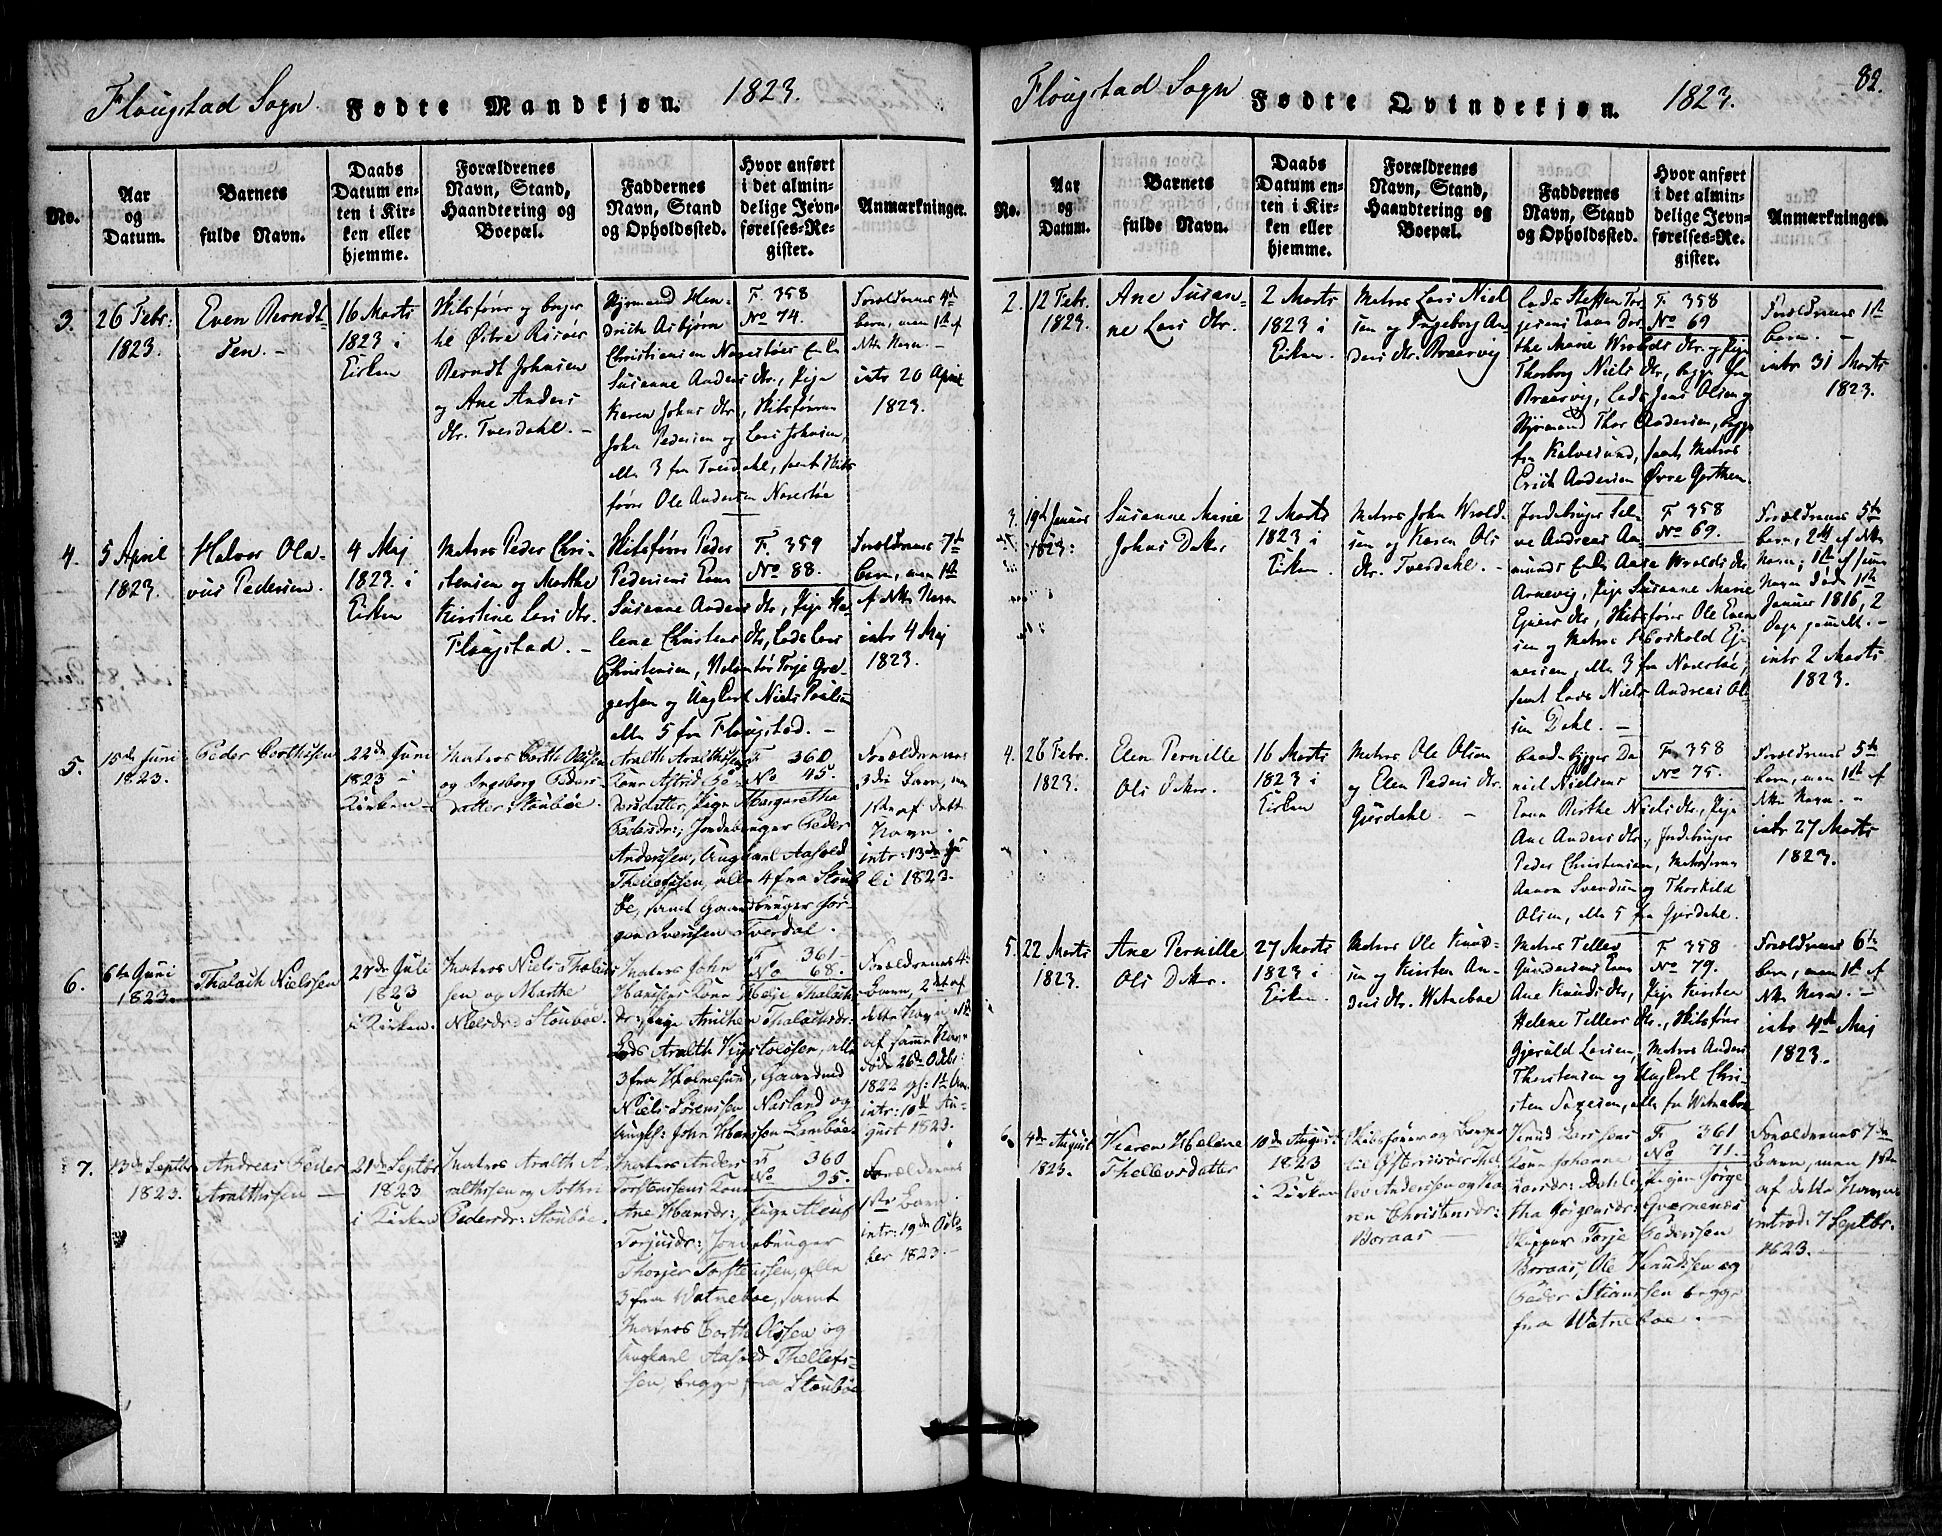 Flougstad Sogn. Fødte Mandkjøn. 1823.
No.
Aar
og
Datum.
Barnets
fulde Navn.
Daabs
Datum en-
ten i Kir-
ken eller
hjemme.
Forældrenes
Navn, Stand,
Haandtering og
Boepæl.
Faddernes
Navn, Stand
og Opholdssted.
Hvor anført
i det almin-
delige Jevn-
førelses-Re-
gister.
Anmærkninger.
3.
26 Febr:
1823.
Even Berndt-
sen.
16 Marts
1823 i
Kirken
Skibsfører og
Østre Risøer
Berndt Johnsen
og Ane Anders
dtr. Tverdahl.
Hen-
drich Asbjørn
Christiensen
Susanne Anders dtr., Pige
Karen Johns dtr., Skibsføreren
John Pedersen og Lars Johnsen,
alle 3 fra Tverdahl, samt Skibs
fører Ole Andersen Narestøe
F. 358
No 74.
Forældrenes 4de
barn, men 1ste af
dette Navn.
intr 20 April
1823.
4.
5 April
1823.
Halvor Ola-
vus Pedersen.
4 Maj
1823 i
Kirken
Matros Peder Chri-
stensen og Marthe
Kirstine Lars dtr.
Flougstad.
Skibsfører Peder
Pedersens Kone
Susanne Anders dtr, Pige He-
lene Christens dtr, Lods Lars
Christensen, Terje Gre-
gersen og Ungkarl Niels Poulsen
alle 5 fra Flougstad.
F. 359
No 88.
Forældrenes 7de
barn, men 1ste
af dette Navn
intr 4 Maj
1823.
5.
15de Juni
1823.
Peder Corthssen
22de Juni
1823 i
Kirken
Matros Corth Olssen
og Ingeborg Peders
datter Stoubøe.
Aralth Aralthssens
Kone Astrid
datter, Pige Margarethe
Pedersdr:, Jordebruger Peder
Anderssen, Ungkarl Aasold
Thellefssen, alle 4 fra Stoub
øe, samt Gaardbruger Jør-
gen Ivarssen Tverdal.
F 360
No 45.
Forældrenes
3die Barn, men
1ste af dette
Navn.
intr: 13de Ju
li 1823.
6.
6te Juni
1823.
Thalach Nielssen
27de Juli
1823
i Kirken.
Matros Niels Thalach
sen og Marthe
Nielsdr: Stoubøe.
Matros John
Hanssens Kone Helje Thalach
dr:, Pige Anichen Thalachsdr:
Lods Aralth alle
3 fra Holmesund, Gaardmd
Niels Sørenssen Narland og
Ungk: John Hanssen
F 361
No 68.
Forældrenes 4de
Barn, 2det af
dette Navn, 1ste
af samme Navn
døde 26de Octbr:
1822
intr: 10de Au-
gust 1823.
7.
13de Septbr
1823.
Andreas Peder
Aralthssen
21de Septbr
1823
i Kirken
Matros Aralth A-
ralthssen og Asthri
Pedersdr: Stoubøe.
Matros Anders
Torstenssens Kone
Ane Hansdr:, Pige
Torjusdr: Jordebruger
Thorjer Torstenssen, alle
3 fra Watnebøe, samt
Matros Corth Olssen og
Ungkarl Aasold Thellefs-
sen, begge fra Stoubøe
F 360
No 95.
Forældrenes
1ste Barn.
intr: 19de Octo-
ber 1823.
Flougstad Sogn Fødte Qvindekjøn. 1823. 82.
No.
Aar
og
Datum.
Barnets
fulde Navn.
Daabs
Datum en-
ten i Kir-
ken eller
hjemme.
Forældrenes
Navn, Stand,
Haandtering og
Boepæl.
Faddernes
Navn, Stand
og Opholdssted.
Hvor anført
i det almin-
delige Jevn-
førelses-Re-
gister.
Anmærkninger.
2.
12 Febr.
1823.
Ane Susan-
ne Lars dtr.
2 Marts
1823 i
Kirken.
Matros Lars Niel
sen og Ingeborg An
ders dtr. Braarvig
Lods Steffen Tor
jesens Kone Dor-
the Marie Wrolds dtr. og Pige
Thorborg Niels dtr, begge fra
Braarvig, Lods Jens Olsen og
Thor Andersen, begge
fra Kalvesund, samt Matros
Erich Andersen Øvre Garthen
F 358
No 69
Forældrenes 1ste
barn.
intr 31 Marts
1823.
3.
19de Januar
1823:
Susanne Marie
Johns Datter
2 Marts
1823 i
Kirken.
Matros John Wrold-
sen og Karen Ols
dtr. Tverdahl.
Jordebruger Sal-
ve Andreas Aa-
munds Enke Aase Wrolds dtr
Arnevig, Pige Susanne Marie
Ejners dtr, Skibsfører Ole Even
sen og Matros Horskold Ej-
nersen, alle 3 fra Narestøe,
samt Lods Niels Andreas Ol
sen Dahl.
F 358
No 69.
Forældrenes 5te
barn, 2det af dette
Navn; 1ste af samme
Navn døde 1ste
Januar 1816, 2
Dage gammel.
intr 2 Marts
1823.
4.
26 Febr.
1823.
Elen Pernille
Ols Datter.
16 Marts
1823 i
Kirken
Matros Ole Olsen
og Elen Peders dtr.
Gjerdahl.
Baadbygger Da
niel Nielsens
Kone Birthe Niels dtr., Pige
Ane Anders dtr, Jordebruger
Peder Christensen, Matroserne
Aanon Svendsen og Thorkild
Olsen, alle 5 fra Gjerdahl.
F. 358
No 75.
Forældrenes 5te
barn, men 1ste af
dette Navn.
intr 27 Marts
1823.
5.
22 Marts
1823.
Ane Pernille
Ols Datter.
27 Marts
1823 i
Kirken.
Matros Ole Knud-
sen og Kirsten An-
ders dtr. Watnebøe
Matros Tellev
Gundersens Kone
Ane Knuds dtr, Pige Kirsten
Helene Tellevs dtr., Skibsfører
Gjeruld Larsen, Matros Anders
Thorstensen og Ungkarl Chri-
sten alle fra Watnebøe
F 358
No 79.
Forældrenes 6te
barn, men 1ste af
dette Navn.
intr 4de Maj
1823.
6.
4de August
1823.
Karen Helene
Thellevsdatter
10de August
1823
i Kirken
Skibsfører og Borger
til Østerrisøer Thel
lev Anderssen og Ka-
ren Christensdr:
Boraas
Knud Larssens
Kone Johanne
Larsdr: Pigen Jørge
tha Jørgensdr: Qværnenæs
Skipper Torje Pederssen
Boraas, Ole Knudssen og
Peder Stianssen begge
fra Watnebøe.
F 361
No 71.
Forældrenes 7de
Barn, men 1ste
af dette Navn
introd: 7 Septbr.
1823.